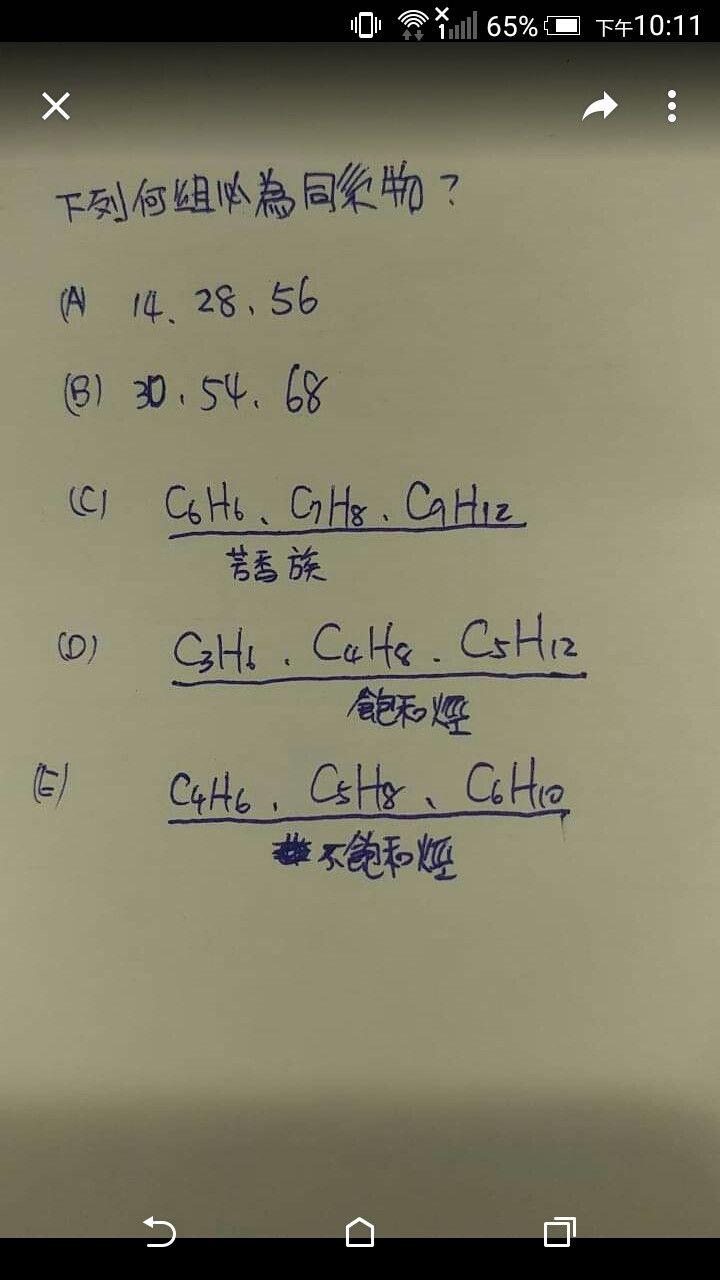 65% 下午10:11
下列何組必為同系物？
(A) 14、28、56
(B) 30、54、68
(C) C6H6、C7H8、C9H12
芳香族
(D) C3H6、C4H8、C5H12
飽和烴
(E) C4H6、C5H8、C6H10
不飽和烴